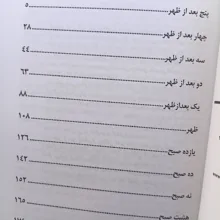 پنج بعد از ظهر ۵
چهار بعد از ظهر ۲۸
سه بعد از ظهر ۴۴
دو بعد از ظهر ۶۳
یک بعدازظهر ۸۸
ظهر ۱۰۸
یازده صبح ۱۳۶
ده صبح ۱۴۲
نه صبح ۱۵۲
هشت صبح ۱۶۵